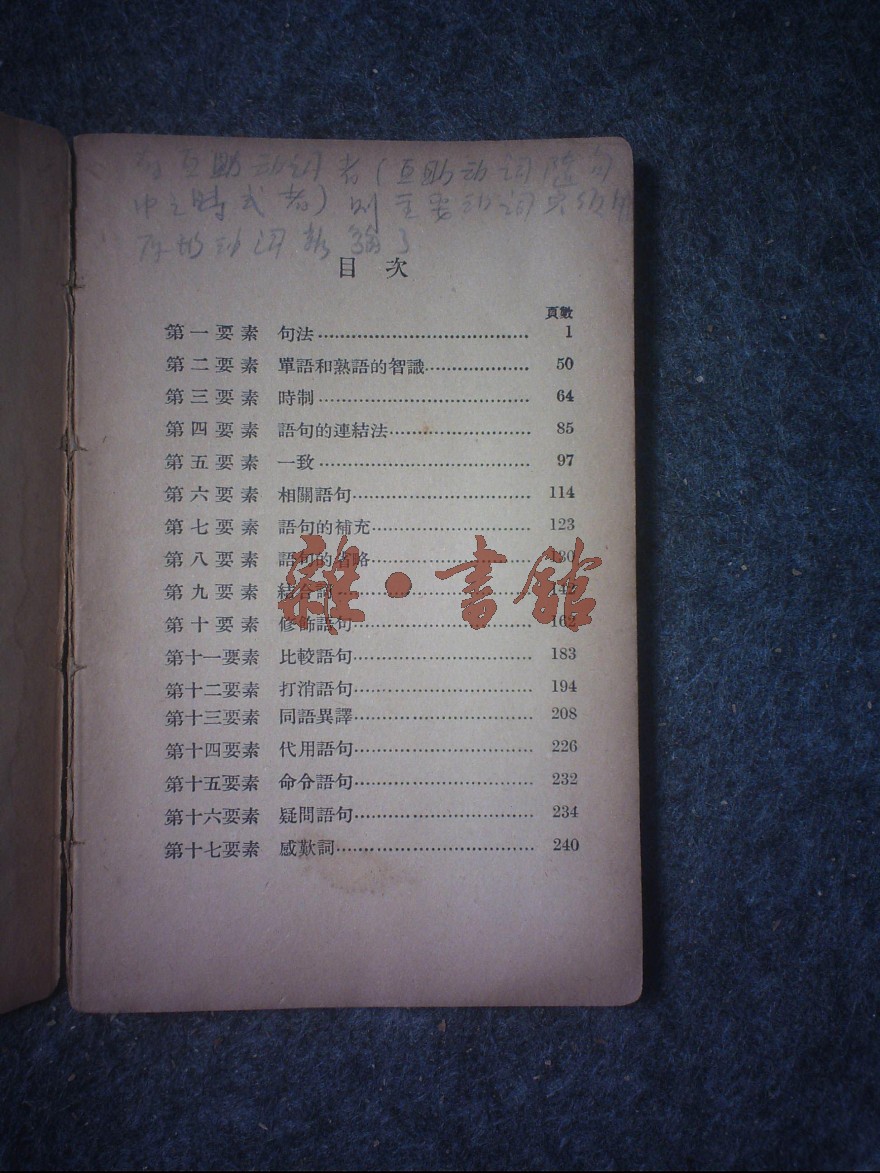 有互助动词者（互助动词随句
中之時式者）则主要动词只须用
原形动词就够了
目次
頁數
第一要素 句法 1
第二要素 單語和熟語的智識 50
第三要素 時制 64
第四要素 語句的連結法 85
第五要素 一致 97
第六要素 相關語句 114
第七要素 語句的補充 123
第八要素 語句的省略 130
第九要素 結合詞 142
第十要素 修飾語句 162
第十一要素 比較語句 183
第十二要素 打消語句 194
第十三要素 同語異譯 208
第十四要素 代用語句 226
第十五要素 命令語句 232
第十六要素 疑問語句 234
第十七要素 感歎詞 240
雜·書館